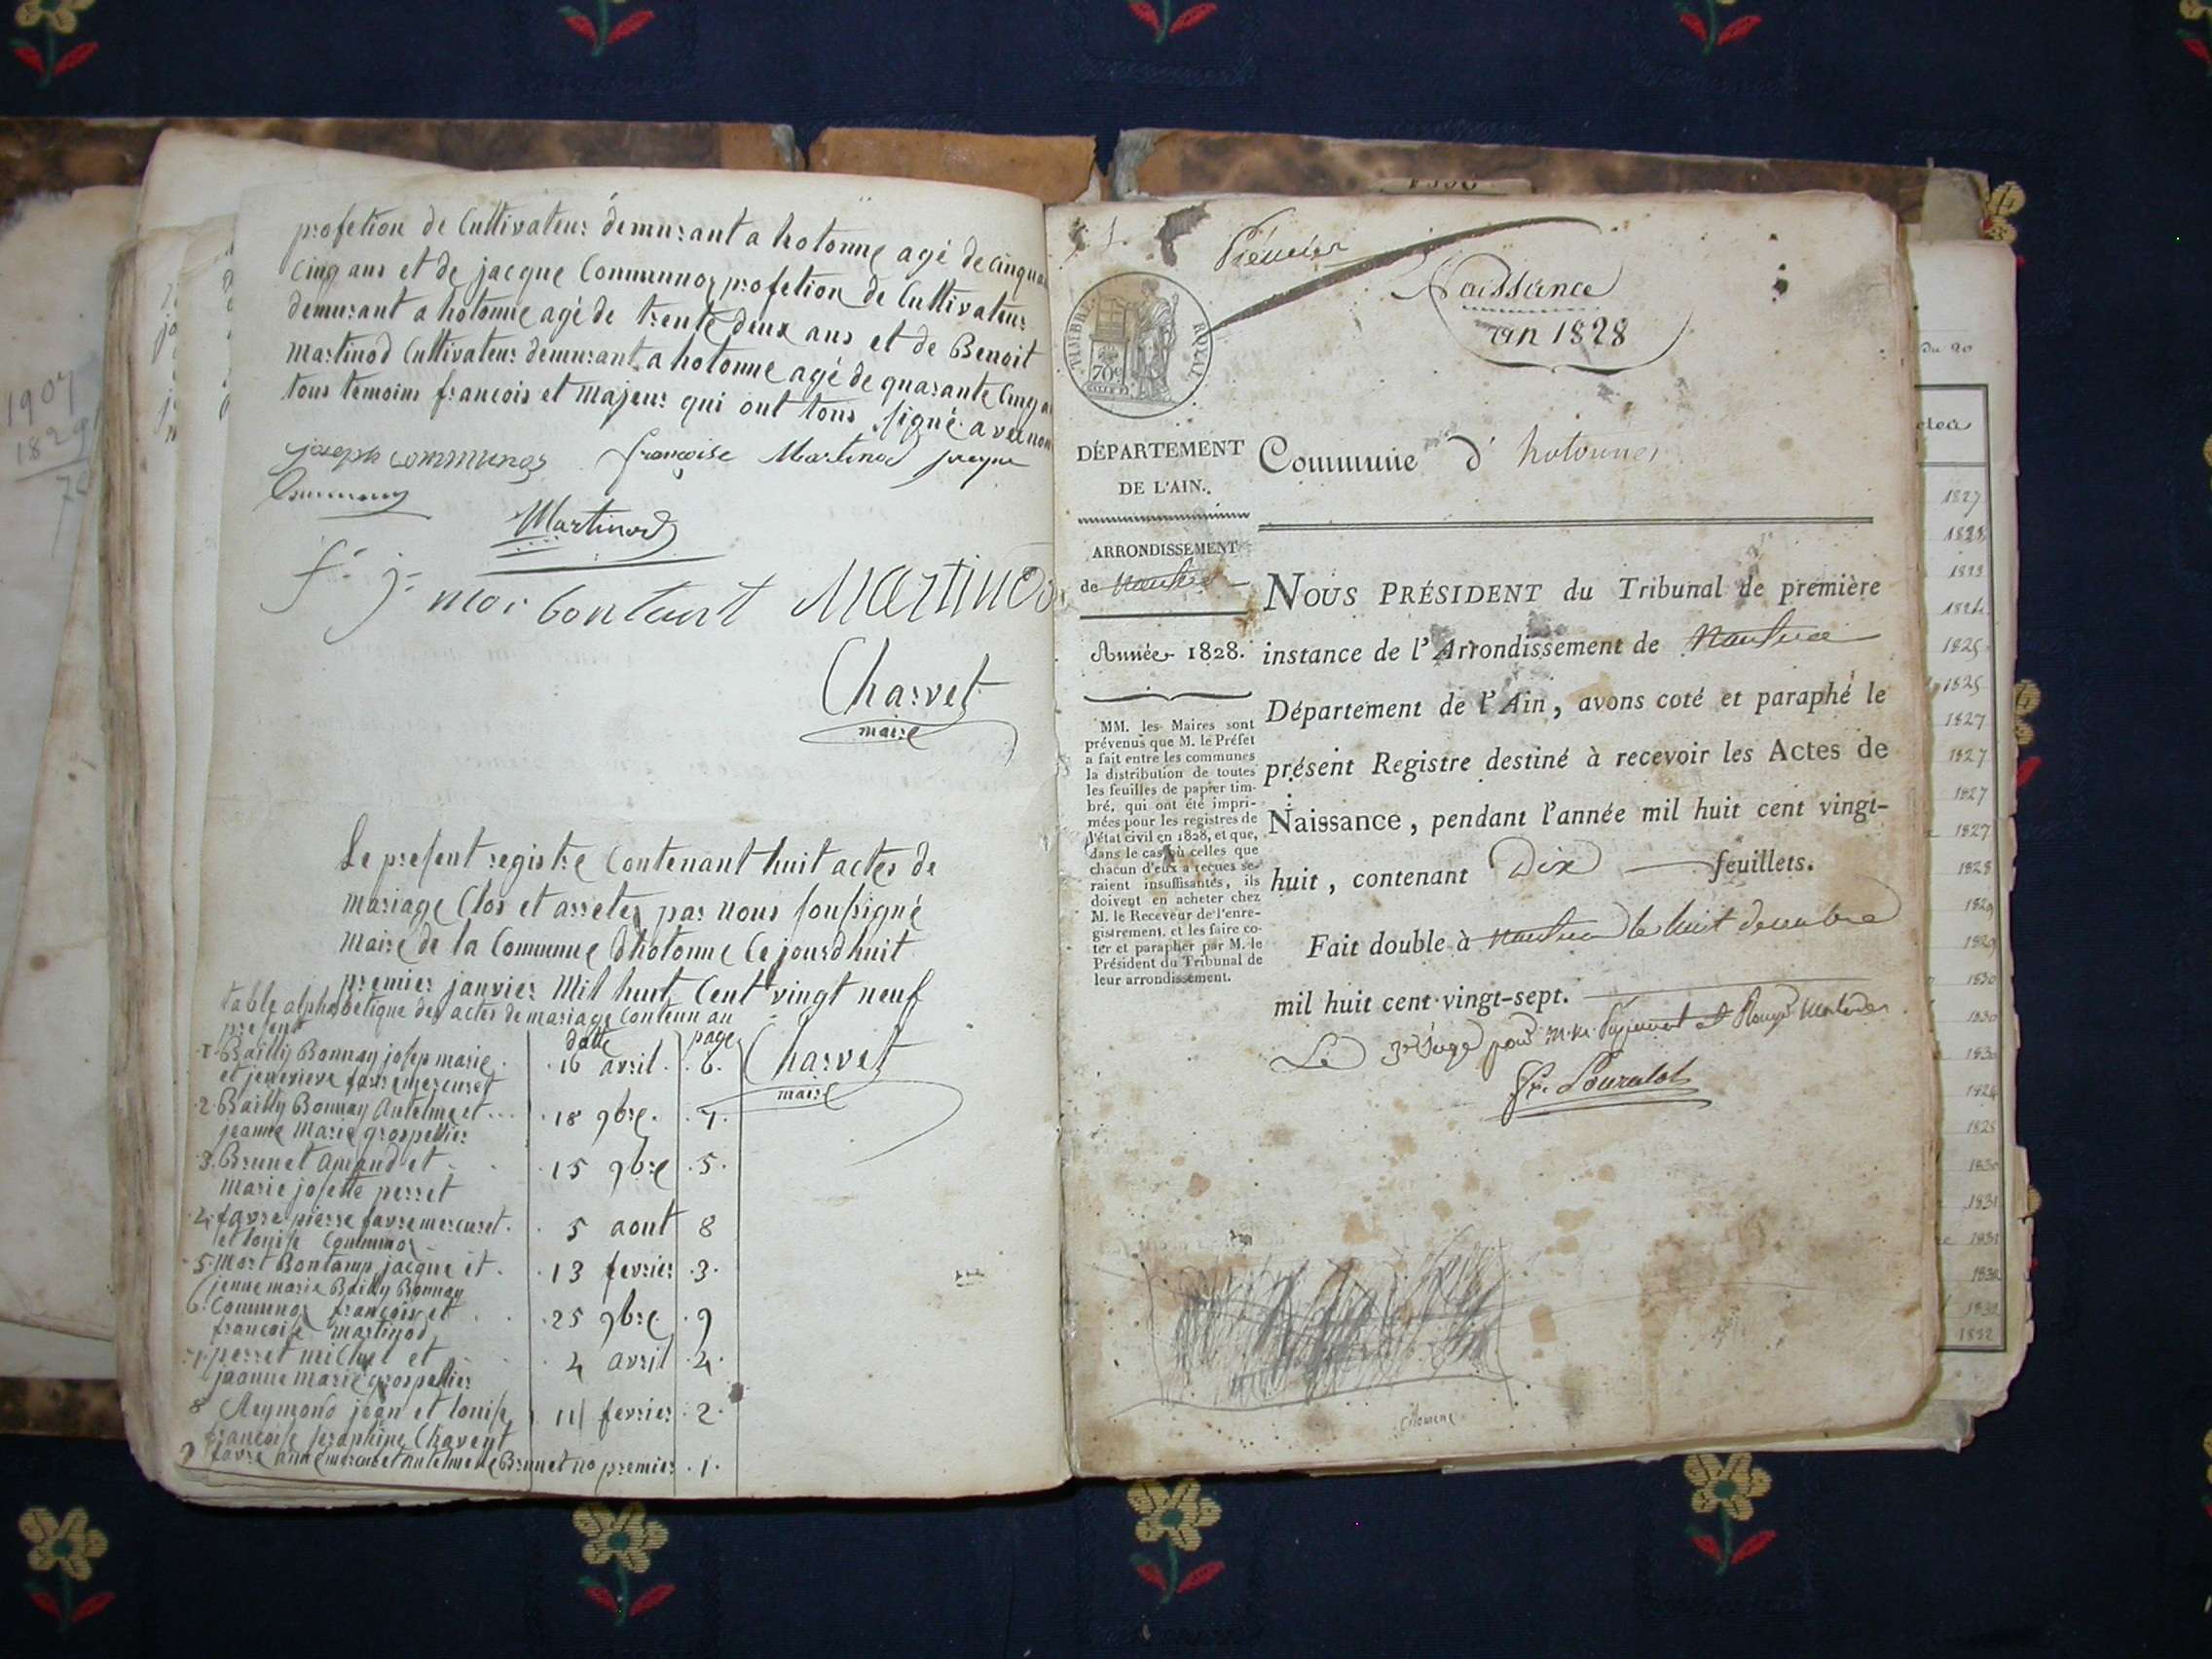 profetion de Cultivateur demurant a hotonne agé de cinqua
Cinq ans et de jacque Communoz profetion de Cultivateur
demurant a hotonne agé de trente deux ans et de Benoit
Martinod Cultivateur demurant a hotonne agé de quarante Cinq a
tous temoins francois et majeur qui ont tous signé avec nou
joseph communoz françoise Martinod jacque
Communoz
Martinod
f. j. mor bontant Martinod
Charvet
maire
Le present registre Contenant huit actes de
mariage Clos et arretez par nous soussigné
maire de la Commune dhotonne Ce jourdhuit
premier janvier Mil huit Cent vingt neuf
table alphabetique des actes de mariage Contenu au
present
datte page
Charvet
maire
1. Bailly Bonnay josep marie 16 avril 6.
et jenevieve favre mercuret
2. Bailly Bonnay Antelme et 18 9bre 7.
jeanne Marie grospellier
3. Brunet amand et 15 9bre 5.
marie josette perret
4. favre pierre favre mercuret 5 aout 8
et louise Communoz
5. Mort Bontamp jacque et 13 fevrier 3.
jenne marie Bailly Bonnay
6. Communoz francois et 25 9bre 9
francoise martinod
7. perret michel et 4 avril 4.
jaonne marie grospellier
8 Reymond jean et louise 11 fevrier 2.
francoise seraphine Chavent
9 favre anne mercuret antelme de Brunet no premier 1.
1907
1829
1.
Premier
Naissance
an 1828
TIMBRE ROYAL
70c
DÉPARTEMENT
DE L'AIN.
Commune d' hotonnes
ARRONDISSEMENT
de Nantua
Année 1828.
MM. les Maires sont
prévenus que M. le Préfet
a fait entre les communes
la distribution de toutes
les feuilles de papier tim-
bré, qui ont été impri-
mées pour les registres de
l'état civil en 1828, et que,
dans le cas où celles que
chacun d'eux a reçues se-
raient insuffisantes, ils
doivent en acheter chez
M. le Receveur de l'enre-
gistrement, et les faire co-
ter et parapher par M. le
Président du Tribunal de
leur arrondissement.
NOUS PRÉSIDENT du Tribunal de première
instance de l'Arrondissement de Nantua
Département de l'Ain, avons coté et paraphé le
présent Registre destiné à recevoir les Actes de
Naissance, pendant l'année mil huit cent vingt-
huit, contenant Dix feuillets.
Fait double à Nantua le huit decembre
mil huit cent vingt-sept.
Le juge pour
du 20
1827
1828
1825
1827
1827
1827
1827
1828
1829
1829
1830
1830
1830
1828
1830
1831
1831
1832
1832